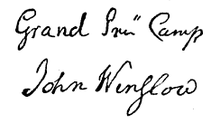 Grand Pré Camp
John Winslow